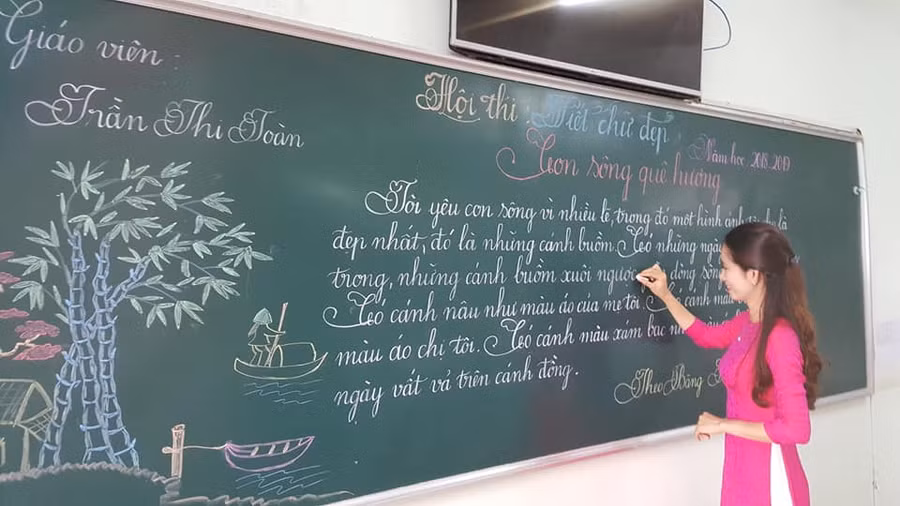 Giáo viên:
Trần Thị Toàn
Hội thi: Viết chữ đẹp
Năm học 2018-2019
Con sông quê hương
Tôi yêu con sông vì nhiều lẽ, trong đó một hình ảnh là
đẹp nhất, đó là những cánh buồm. Có những
trong, những cánh buồm xuôi ngược dòng sông
Có cánh nâu như màu áo của mẹ tôi. Có cánh màu
màu áo chị tôi. Có cánh màu xám bạc
ngày vất vả trên cánh đồng.
Theo Băng